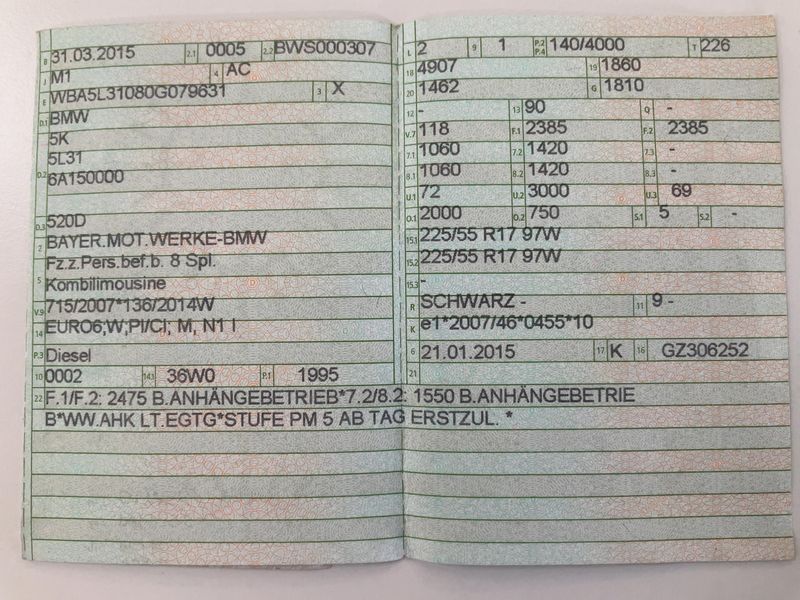 B 31.03.2015 2.1 0005 2.2 BWS000307
J M1 4 AC
E WBA5L31080G079631 3 X
D.1 BMW
5K
D.2 5L31
6A150000
D.3 520D
2 BAYER.MOT.WERKE-BMW
Fz.z.Pers.bef.b. 8 Spl.
5 Kombilimousine
V.9 715/2007*136/2014W
14 EURO6;W;PI/CI; M, N1 I
P.3 Diesel
10 0002 14.1 36W0 P.1 1995
L 2 9 1 P.2 P.4 140/4000 T 226
18 4907 19 1860
20 1462 G 1810
12 - 13 90 Q -
V.7 118 F.1 2385 F.2 2385
7.1 1060 7.2 1420 7.3 -
8.1 1060 8.2 1420 8.3 -
U.1 72 U.2 3000 U.3 69
O.1 2000 O.2 750 S.1 5 S.2 -
15.1 225/55 R17 97W
15.2 225/55 R17 97W
15.3 -
R SCHWARZ - 11 9 -
K e1*2007/46*0455*10
6 21.01.2015 17 K 16 GZ306252
21
22 F.1/F.2: 2475 B.ANHÄNGEBETRIEB*7.2/8.2: 1550 B.ANHÄNGEBETRIE
B*WW.AHK LT.EGTG*STUFE PM 5 AB TAG ERSTZUL. *